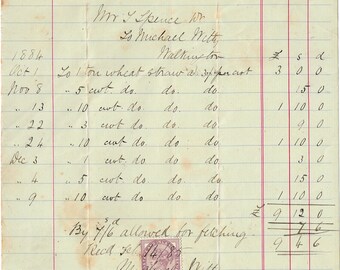 Mr T Spence Dr
To Michael Witty
Walkington
1884 £ s d
Oct 1 To 1 ton wheat straw a 3/- per cwt 3 0 0
Nov 8 " 5 cwt do. do. do. 15 0
" 13 " 10 cwt do. do. do. 1 10 0
" 22 " 3 cwt do. do. do. 9 0
" 24 " 10 cwt do. do. do. 1 10 0
Dec 3 " 1 cwt do. do. do. 3 0
" 4 " 5 cwt do. do. do. 15 0
" 9 " 10 cwt do. do. do 1 10 0
£ 9 12 0
By 7s/6d allowed for fetching 7 6
Recd Feb 14/85 9 4 6